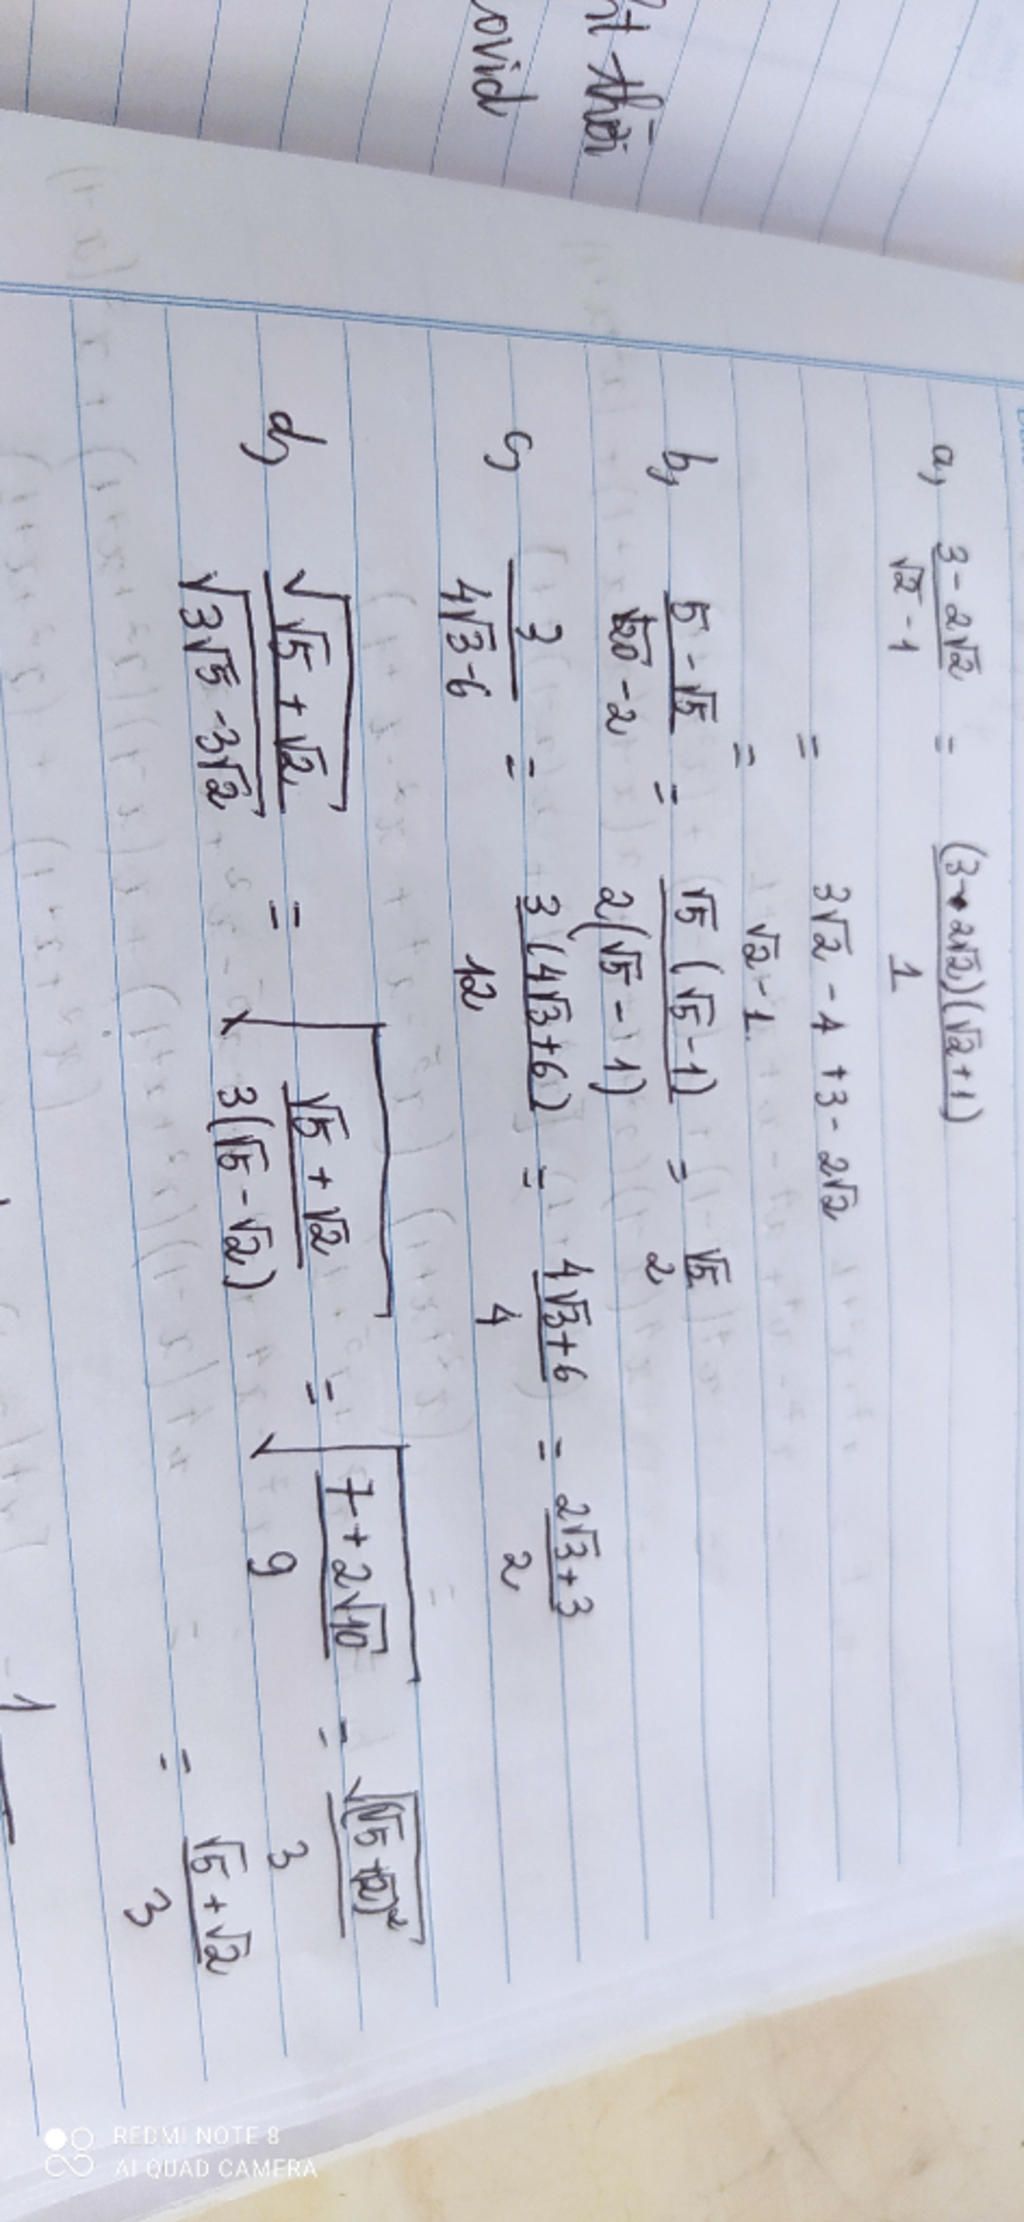 ất thời
ovid
a, \frac{3-2\sqrt{2}}{\sqrt{2}-1} = \frac{(3-2\sqrt{2})(\sqrt{2}+1)}{1}
= 3\sqrt{2} - 4 + 3 - 2\sqrt{2}
= \sqrt{2} - 1.
b, \frac{5-\sqrt{5}}{\sqrt{20}-2} = \frac{\sqrt{5}(\sqrt{5}-1)}{2(\sqrt{5}-1)} = \frac{\sqrt{5}}{2}
c, \frac{3}{4\sqrt{3}-6} = \frac{3(4\sqrt{3}+6)}{12} = \frac{4\sqrt{3}+6}{4} = \frac{2\sqrt{3}+3}{2}
d, \frac{\sqrt{\sqrt{5}+\sqrt{2}}}{\sqrt{3\sqrt{5}-3\sqrt{2}}} = \sqrt{\frac{\sqrt{5}+\sqrt{2}}{3(\sqrt{5}-\sqrt{2})}} = \sqrt{\frac{7+2\sqrt{10}}{9}} = \frac{\sqrt{(\sqrt{5}+\sqrt{2})^2}}{3}
= \frac{\sqrt{5}+\sqrt{2}}{3}
REDMI NOTE 8
AI QUAD CAMERA